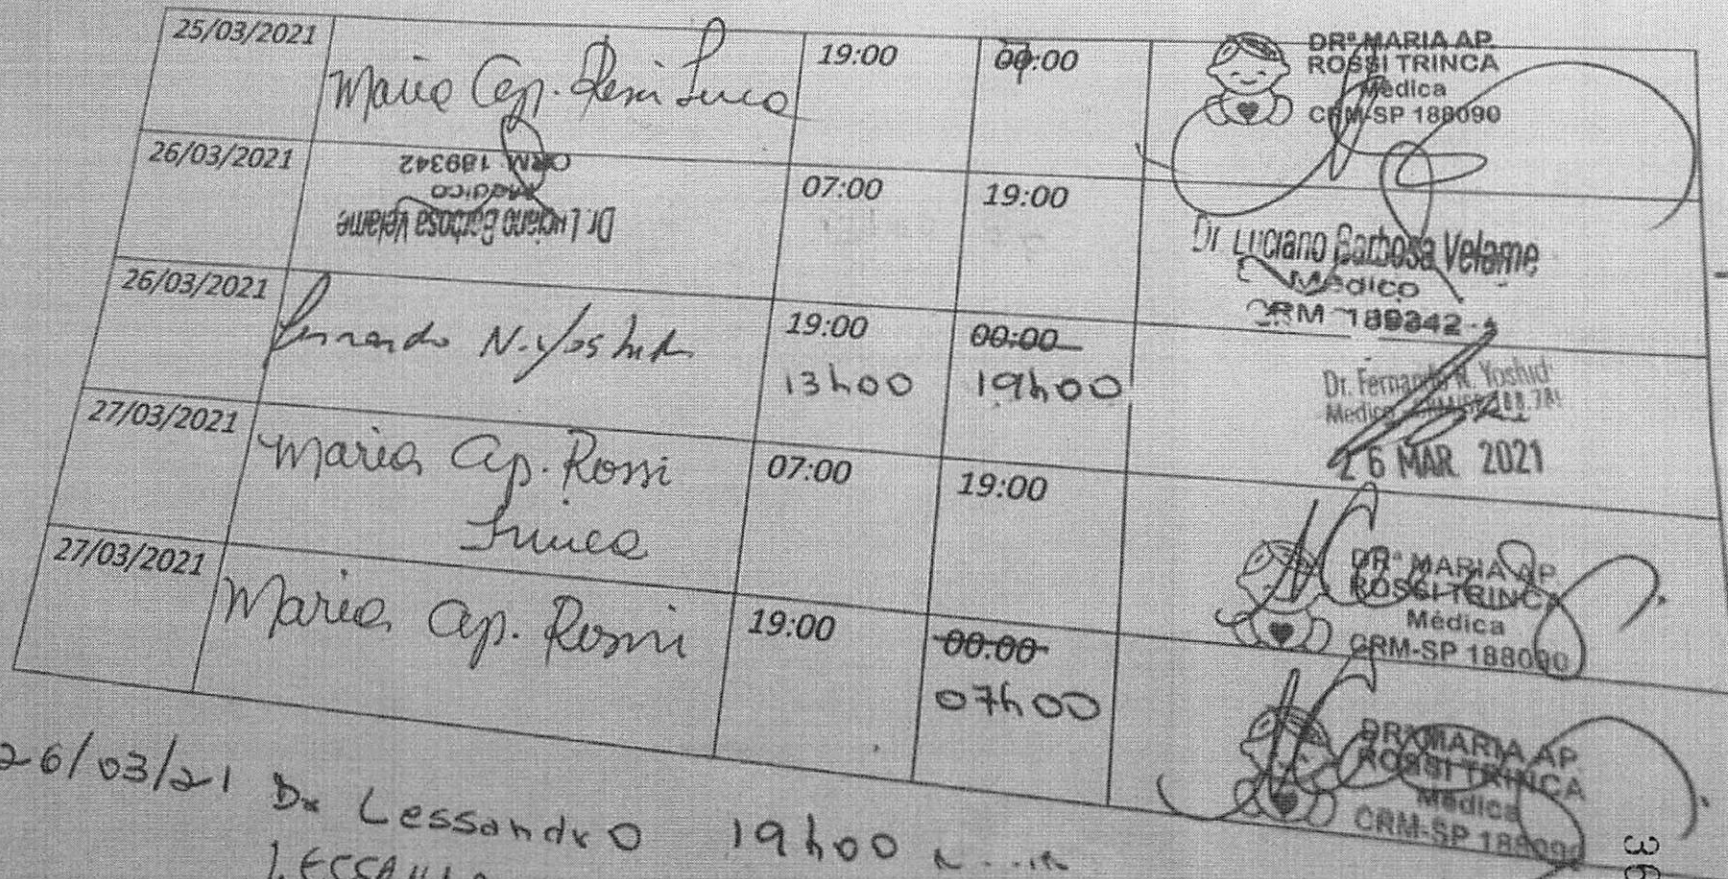 25/03/2021 Maria Ap. Rossi 19:00 :00 DRª MARIA AP.
ROSSI TRINCA
Médica
CRM-SP 188090
26/03/2021 CRM 189342 07:00 19:00
Médico
Dr. Luciano Barbosa Velame
Dr. Luciano Barbosa Velame
Médico
CRM 189342
26/03/2021 Fernando N. Yoshida 19:00 00:00
13h00 19h00
Dr. Fernando N. Yoshid
Medico
26 MAR 2021
27/03/2021 Maria Ap. Rossi 07:00 19:00
Trinca
DRª MARIA AP.
ROSSI TRINCA
Médica
CRM-SP 188090
27/03/2021 Maria Ap. Rossi 19:00 00:00
07h00
DRª MARIA AP.
ROSSI TRINCA
Médica
CRM-SP 188090
26/03/21 Dr Lessandro 19h00
36